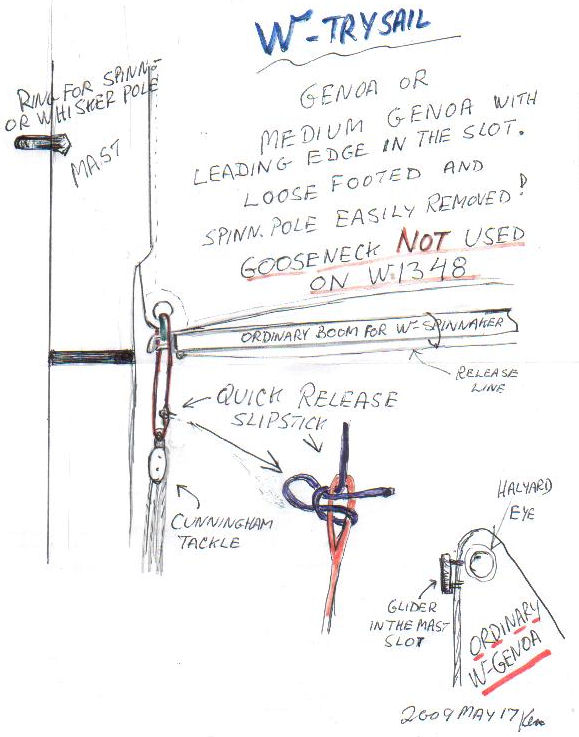 W-TRYSAIL
RING FOR SPINN-
OR WHISKER POLE
MAST
GENOA OR
MEDIUM GENOA WITH
LEADING EDGE IN THE SLOT.
LOOSE FOOTED AND
SPINN. POLE EASILY REMOVED!
GOOSENECK NOT USED
ON W-1348
ORDINARY BOOM FOR W-SPINNAKER
RELEASE
LINE
QUICK RELEASE
SLIPSTICK
CUNNINGHAM
TACKLE
HALYARD
EYE
GLIDER
IN THE MAST
SLOT
ORDINARY
W-GENOA
2009 MAY 17 Ken